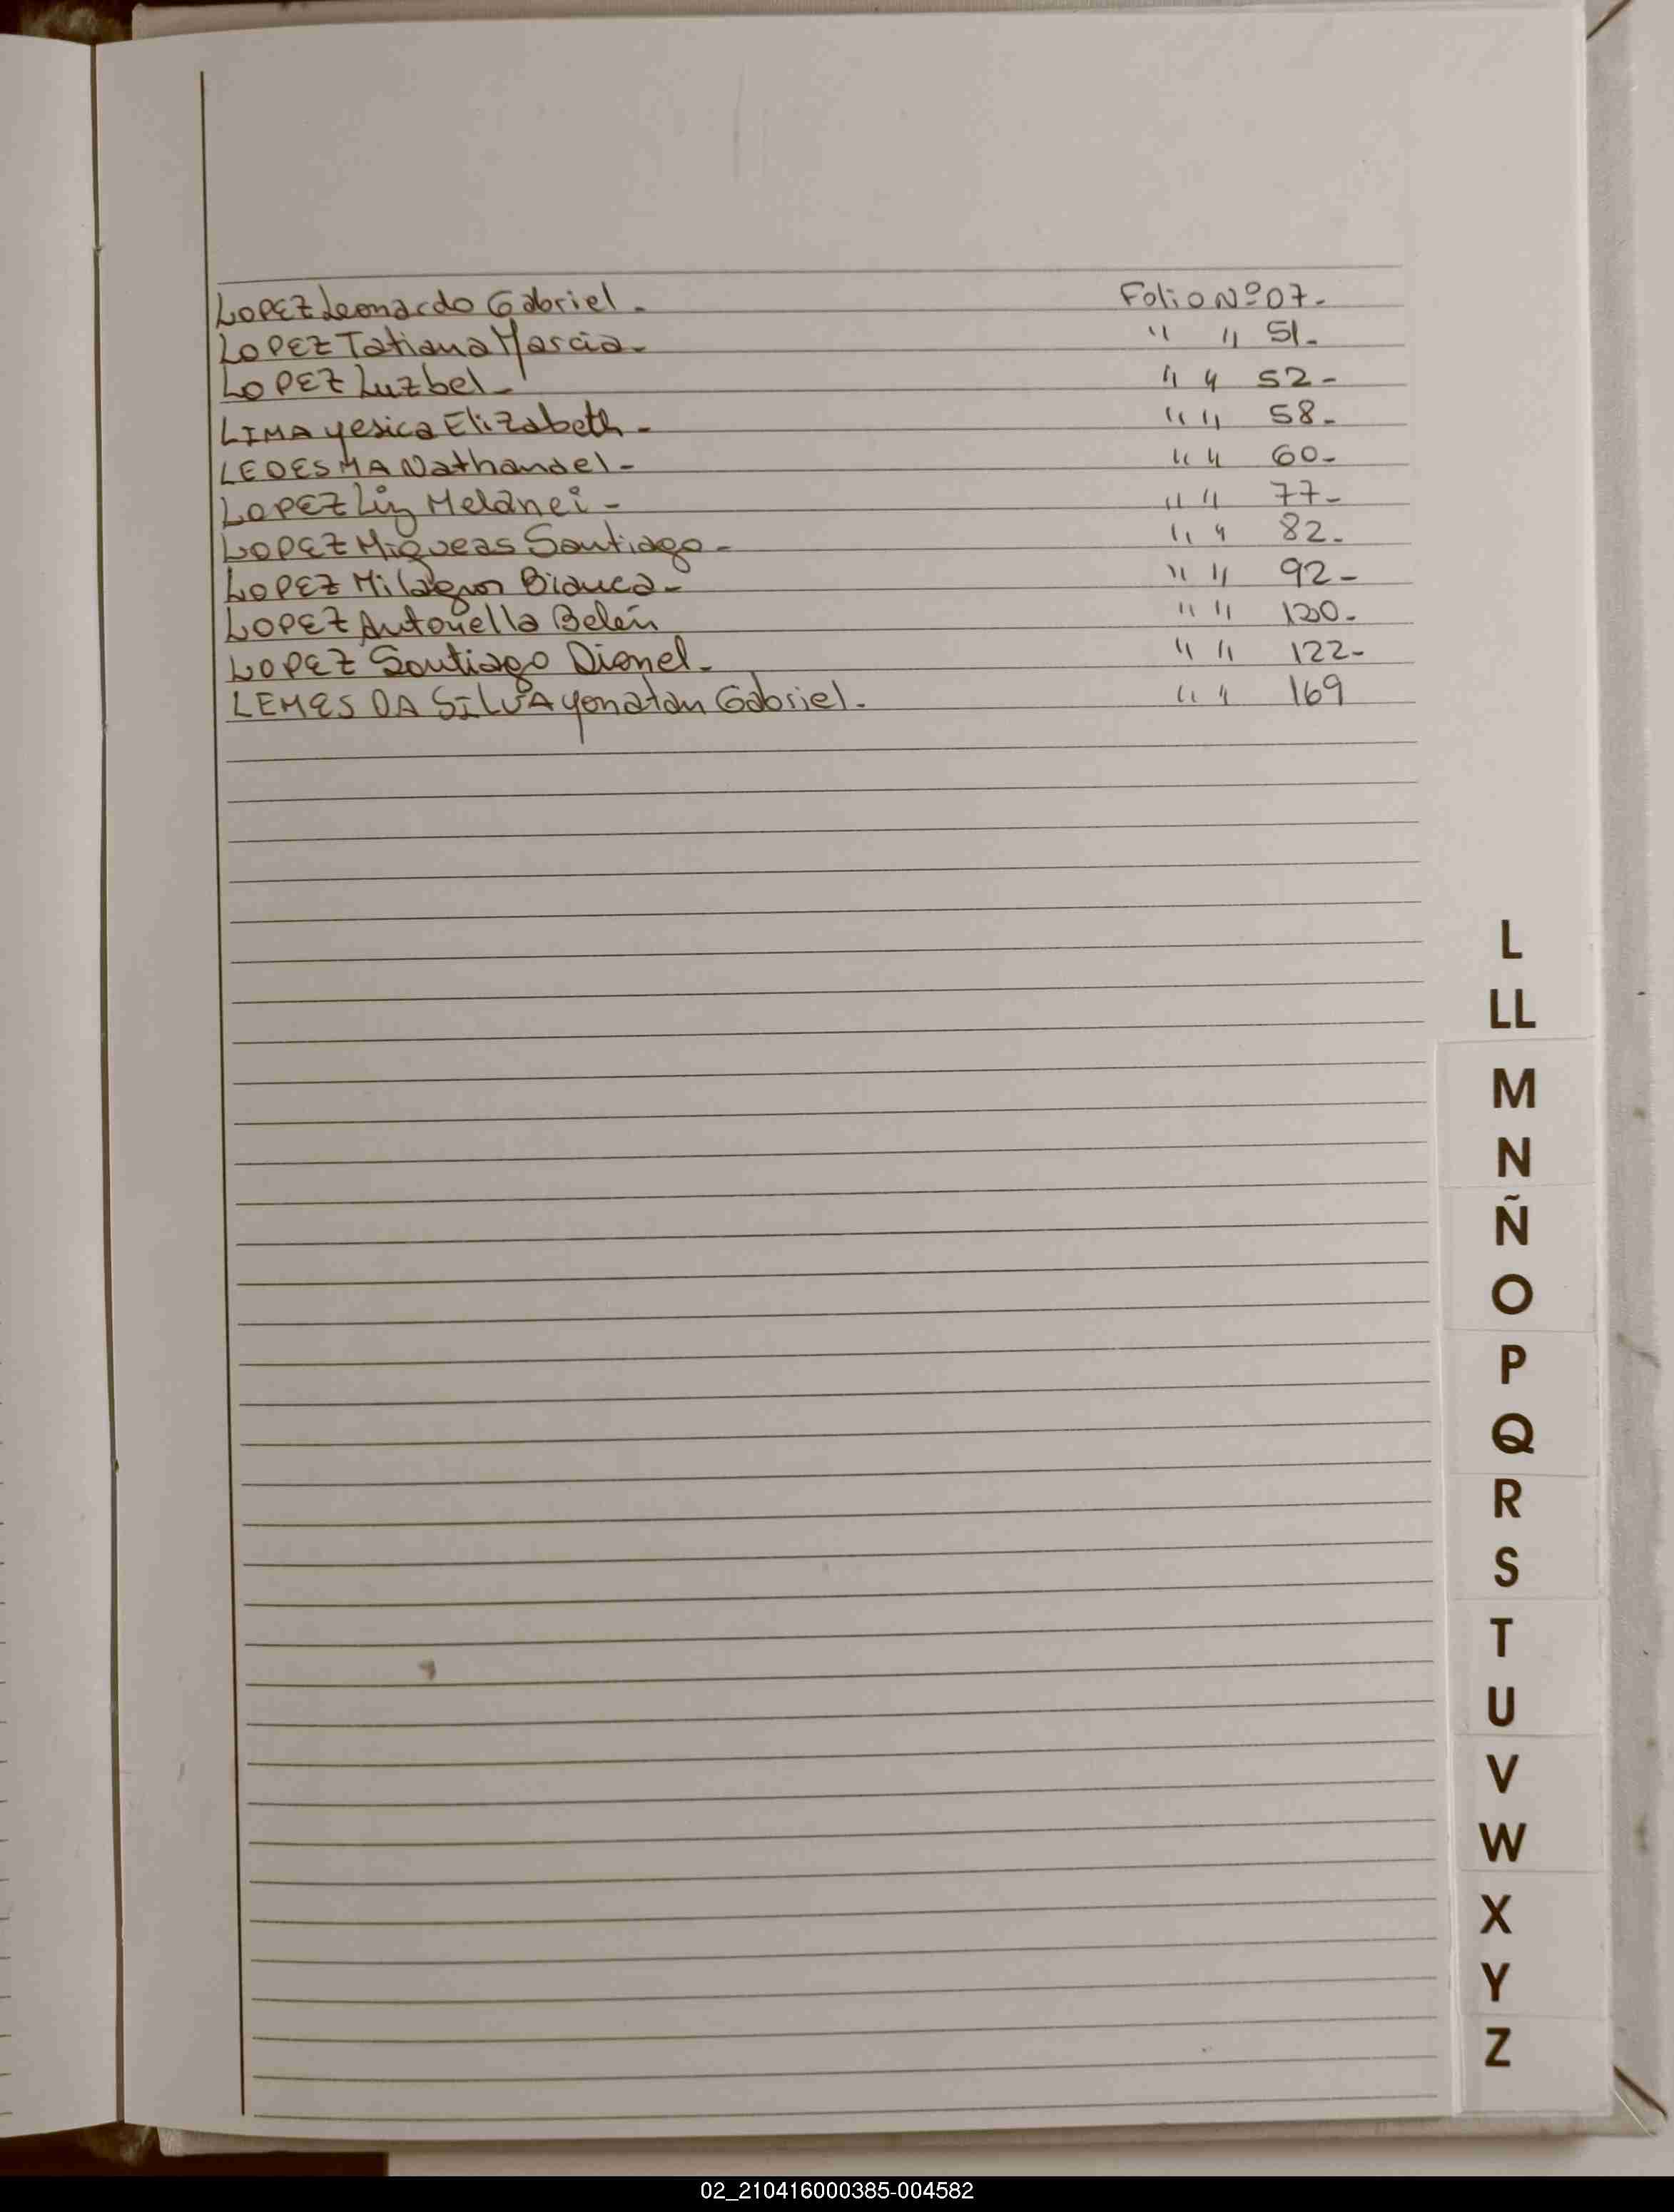 LOPEZ Leonardo Gabriel - Folio Nº 07-
LOPEZ Tatiana Marcia - " " 51-
LOPEZ Luzbel - " " 52-
LIMA yesica Elizabeth - " " 58-
LEDESMA Nathanael - " " 60-
LOPEZ Liz Melanei - " " 77-
LOPEZ Miqueas Santiago - " " 82-
LOPEZ Milagros Bianca - " " 92-
LOPEZ Antonella Belén " "
LOPEZ Santiago Dionel - " " 122-
LEMES DA SILVA yonatan Gabriel. " " 169
L
LL
M
N
Ñ
O
P
Q
R
S
T
U
V
W
X
Y
Z
02_210416000385-004582